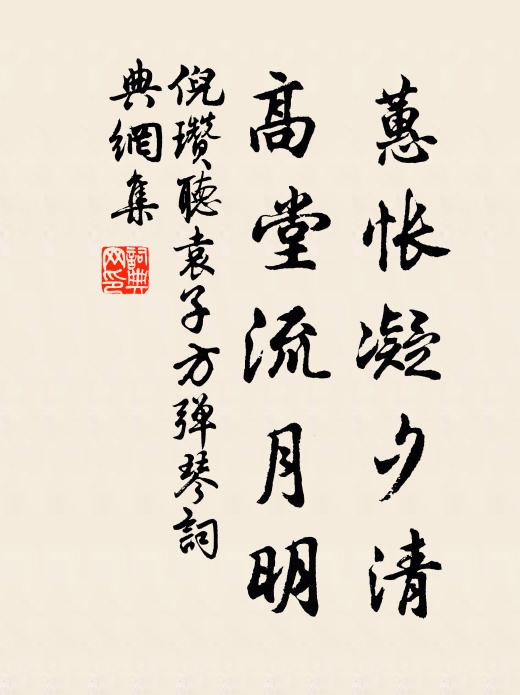 蕙帐凝夕清
高堂流月明
倪瓒聽袁子方弹琴詞
典網集
詞典
网印